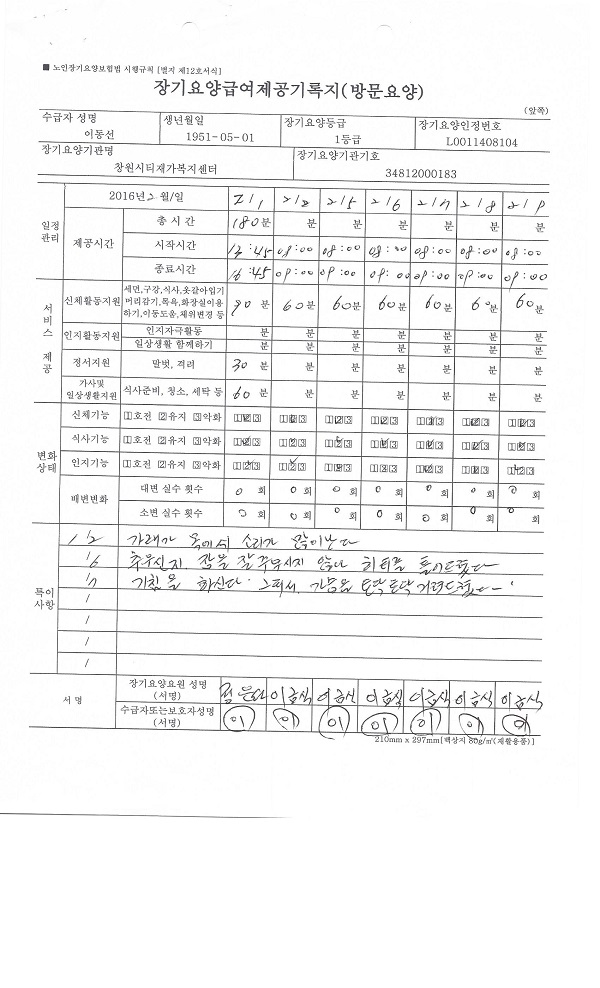 ■ 노인장기요양보험법 시행규칙 [별지 제12호서식]
장기요양급여제공기록지(방문요양)
(앞쪽)
수급자 성명 생년월일 장기요양등급 장기요양인정번호
이동선 1951-05-01 1등급 L0011408104
장기요양기관명 장기요양기관기호
창원시티재가복지센터 34812000183
2016년 2 월/일 2/1 2/2 2/5 2/6 2/7 2/8 2/9
일정관리 제공시간
총 시 간 180분 분 분 분 분 분 분
시작시간 13:45 08:00 08:00 08:00 08:00 08:00 08:00
종료시간 16:45 09:00 09:00 09:00 09:00 09:00 09:00
서비스 제공
신체활동지원 세면,구강,식사,옷갈아입기 머리감기,목욕,화장실이용하기,이동도움,체위변경 등 90 분 60분 60분 60분 60분 60분 60분
인지활동지원 인지자극활동 분 분 분 분 분 분 분
일상생활 함께하기 분 분 분 분 분 분 분
정서지원 말벗, 격려 30 분 분 분 분 분 분 분
가사및 일상생활지원 식사준비, 청소, 세탁 등 60 분 분 분 분 분 분 분
변화상태
신체기능 1호전 2유지 3악화 123 123 123 123 123 123 123
식사기능 1호전 2유지 3악화 123 123 123 123 123 123 123
인지기능 1호전 2유지 3악화 123 123 123 123 123 123 123
배변변화
대변 실수 횟수 0 회 0 회 0 회 0 회 0 회 0 회 0 회
소변 실수 횟수 0 회 0 회 0 회 0 회 0 회 0 회 0 회
특이사항
1/2 가래가 목에서 소리가 많이난다
1/6 추우신지 잠을 잘 주무시지 않나 히터를 틀어드렸다
1/7 기침을 하신다 그래서 가슴을 토닥토닥 거려드렸다
/
/
/
/
서 명
장기요양요원 성명 (서명) 이금식 이금식 이금식 이금식 이금식 이금식
수급자또는보호자성명 (서명) 이 이 이 이 이 이 이
210mm x 297mm[백상지 80g/㎡(재활용품)]